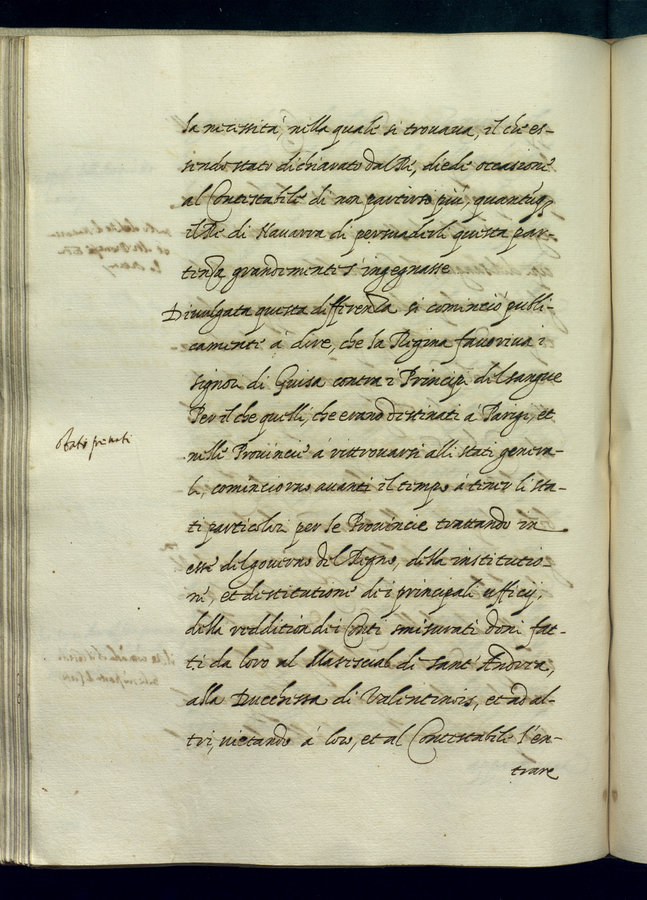 la necessità, nella quale si trouaua, il che es-
sendo stato dichiarato dal Rè, diede occasione
al Contestabile di non partirsi più, quantūq;
il Rè di Nauarra di persuaderli questa par-
tenza grandemente s'ingegnasse
Diuulgata questa differenza si cominciò publi-
camente à dire, che la Regina fauoriua i
signori di Guisa contra i Principi del sangue
Per il che quelli, che erano destinati à Parigi, et
nelle Prouincie à ritrouarsi alli stati genera-
li, cominciorno auanti il tempo à tener li sta-
ti particolari per le Prouincie trattando in
esse del gouerno del Regno, della institutio
ne, et destitutione dei principali ufficij,
della reddition dei Conti smisurati doni fat-
ti da loro al Maresciale di Sant' Andrea,
alla Ducchessa di Valentinois, et ad al-
tri, uietando à loro, et al Contestabile l'en-
trare